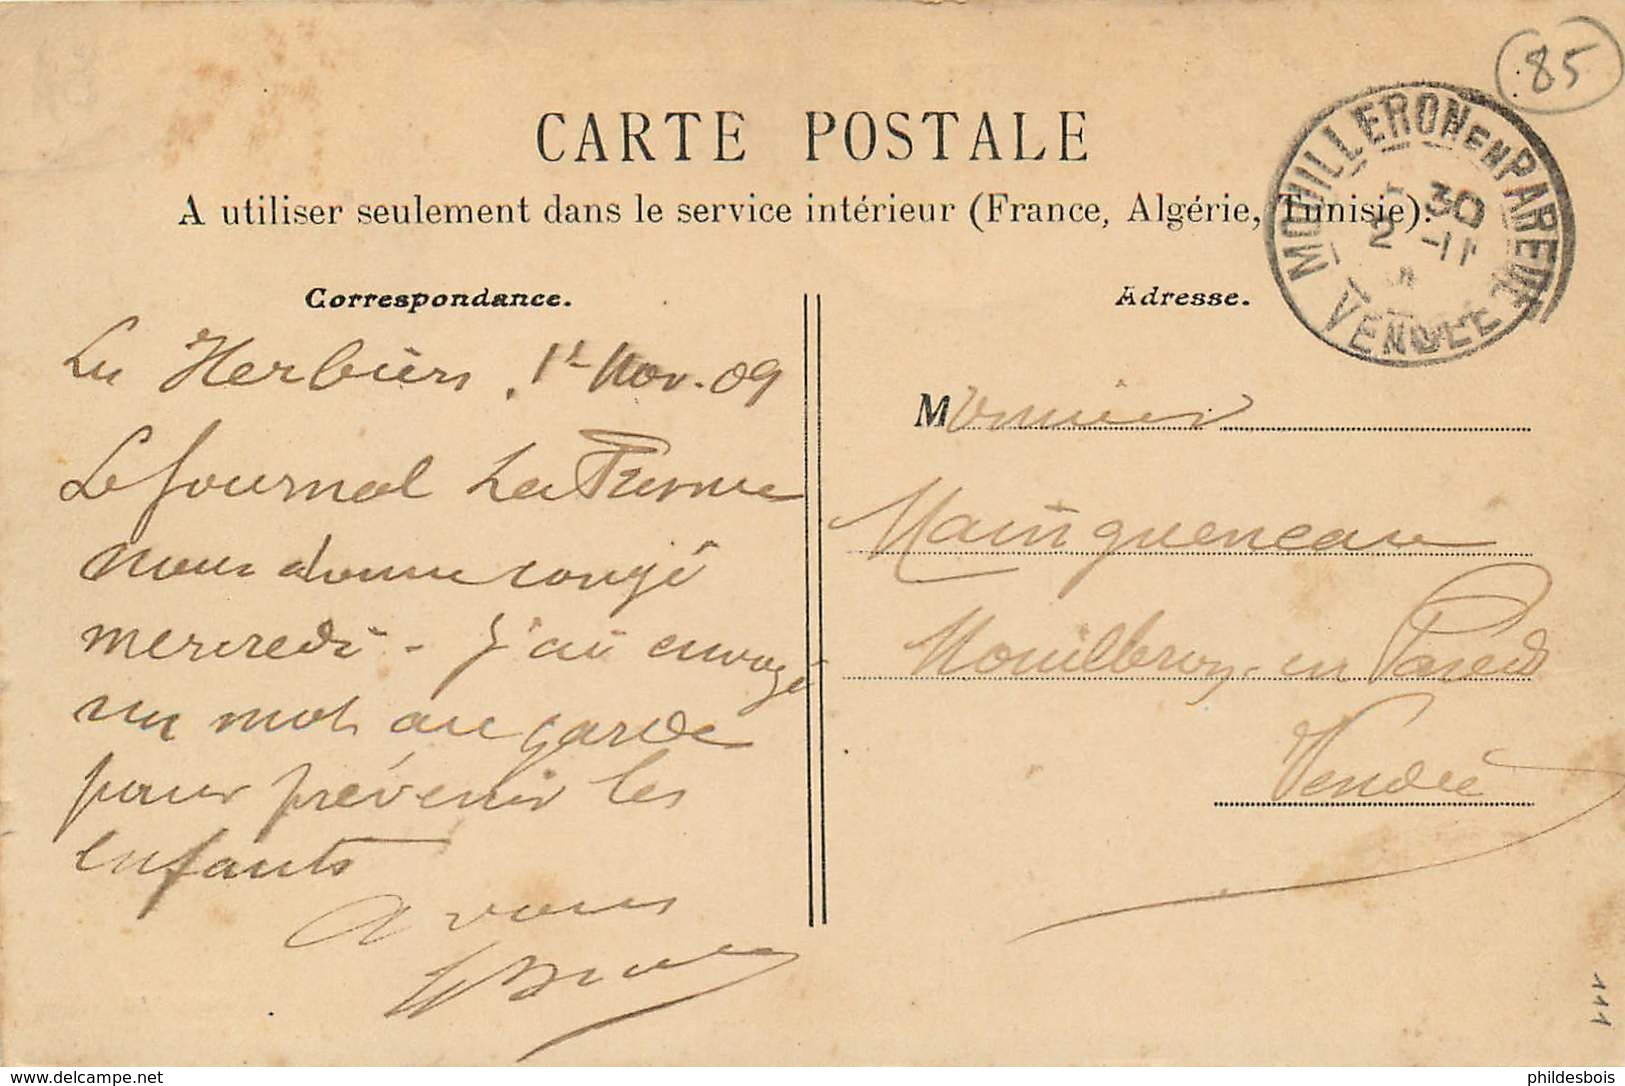 85
CARTE POSTALE
A utiliser seulement dans le service intérieur (France, Algérie, Tunisie).
MOUILLERON EN PAREDS
30
2 -11
VENDEE
Correspondance.
Les Herbiers, 1er Nov. 09
Le journal La
nous donne congé
mercredi - J'ai envoyé
un mot au garde
pour prévenir les
enfants
A vous
Adresse.
Monsieur
Maingueneau
Mouilleron-en Pareds
Vendée
111
delcampe.net
phildesbois